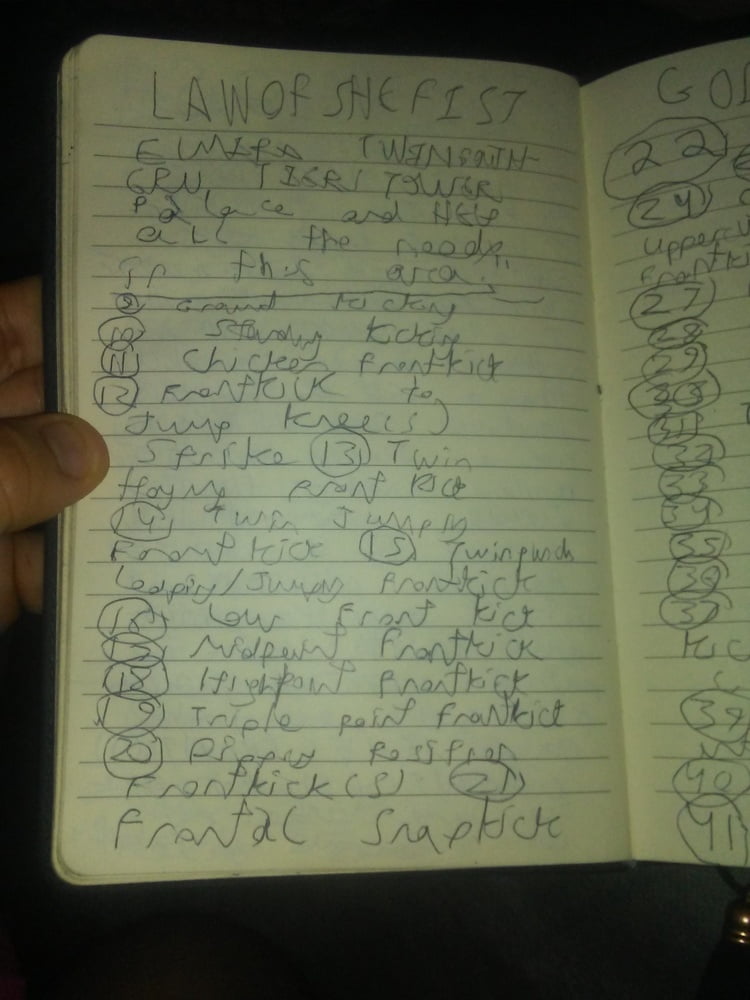 LAW OF SHE FIST
TWIN
TIGER TOWER
Palace and HELP
all the needs
in this area."
9 Ground kicking
10 Standing kicking
11 Chicken frontkick
12 Frontkick to
Jump knee(s)
Strike 13 Twin
front kick
14 Twin Jumping
Front kick 15 Twinpunch
Leaping/Jumping frontkick
16 Low Front kick
17 Midpoint Frontkick
18 Highpoint Frontkick
19 Triple point frontkick
20
Frontkick(s) 21
Frontal Snapkick
22
24
uppercu
frontki
27
28
29
30
31
32
33
34
35
36
37
kic
39
40
41